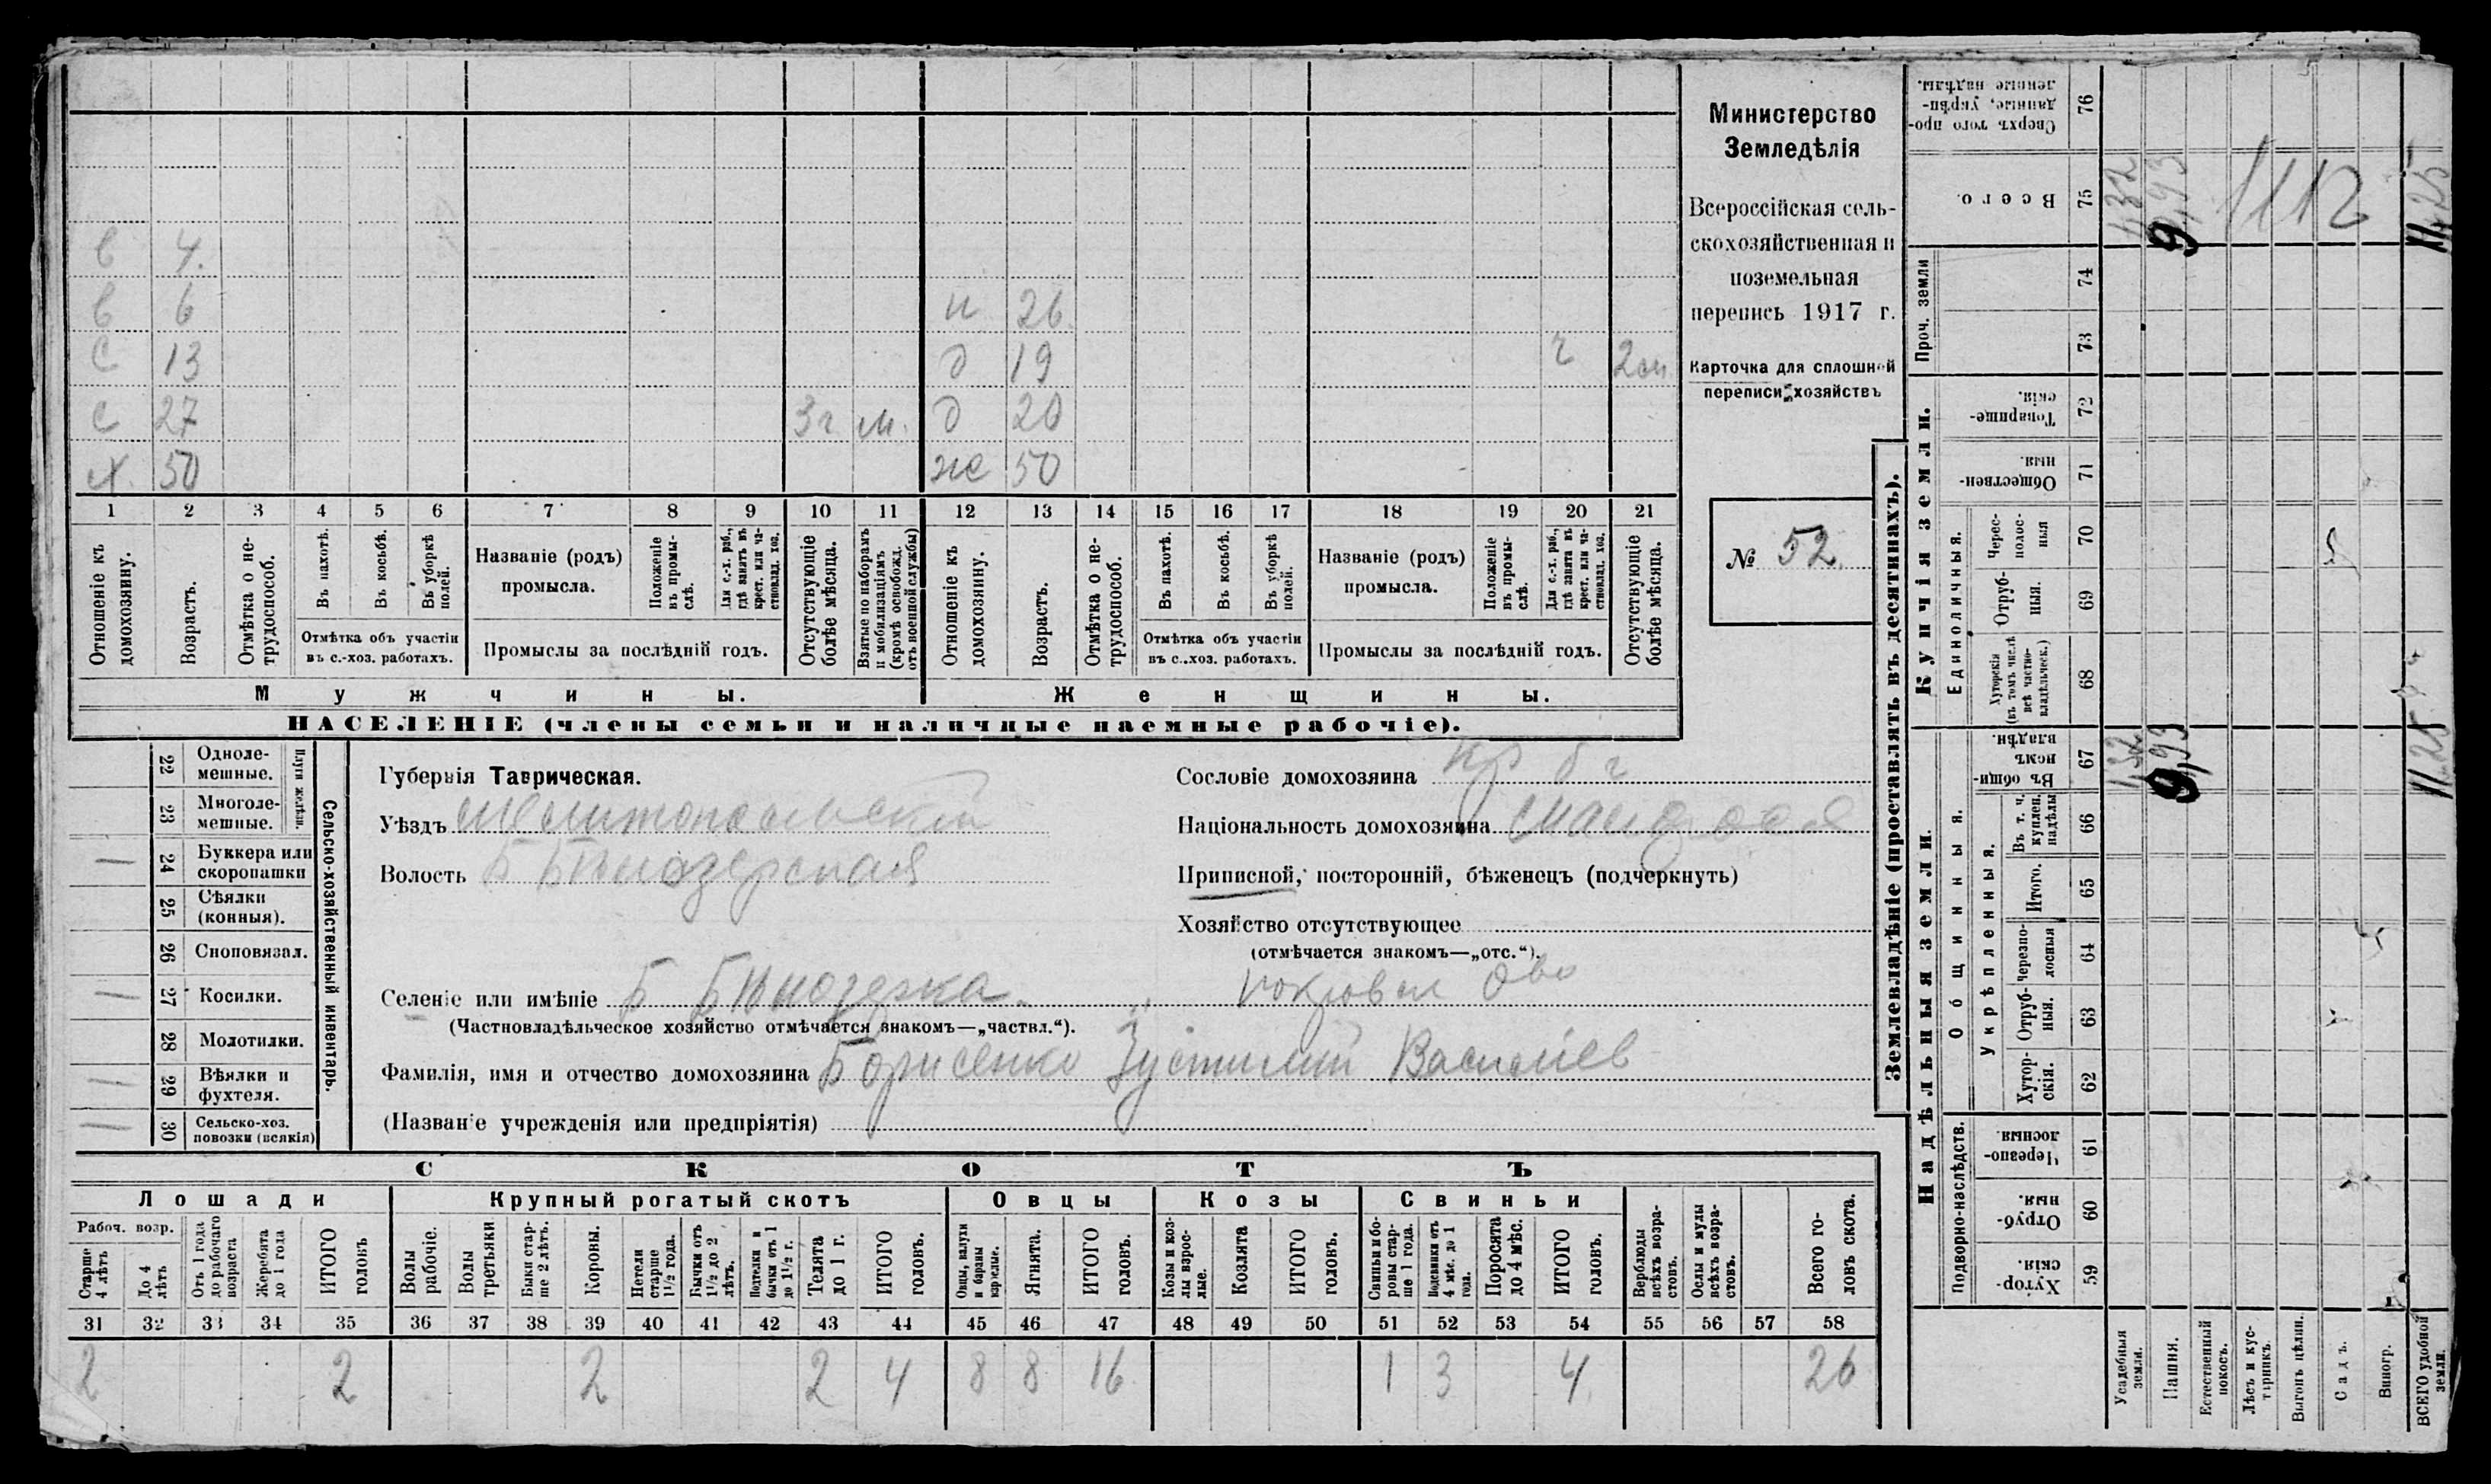 Министерство
Земледѣлія
Всероссійская сель-
скохозяйственная и
поземельная
перепись 1917 г.
Карточка для сплошной
переписи хозяйствъ
№ 52.
в 4.
в 6 н 26
с 13 д 19 2м
с 27 3г м. д 20
х. 50 же 50
1 2 3 4 5 6 7 8 9 10 11 12 13 14 15 16 17 18 19 20 21
Отношеніе къ домохозяину.
Возрастъ.
Отмѣтка о не-трудоспособ.
Въ пахотѣ.
Въ косьбѣ.
Въ уборкѣ полей.
Отмѣтка объ участіи въ с.-хоз. работахъ.
Названіе (родъ) промысла.
Положеніе въ промы-слѣ.
Для с.-х. раб., гдѣ занятъ въ крест. или ча-стновлад. хоз.
Промыслы за послѣдній годъ.
Отсутствующіе болѣе мѣсяца.
Взятые по наборамъ и мобилизаціямъ (кромѣ освобожд. отъ военной службы)
Отношеніе къ домохозяину.
Возрастъ.
Отмѣтка о не-трудоспособ.
Въ пахотѣ.
Въ косьбѣ.
Въ уборкѣ полей.
Отмѣтка объ участіи въ с.-хоз. работахъ.
Названіе (родъ) промысла.
Положеніе въ промы-слѣ.
Для с.-х. раб., гдѣ занятъ въ крест. или ча-стновлад. хоз.
Промыслы за послѣдній годъ.
Отсутствующіе болѣе мѣсяца.
Мужчины. Женщины.
НАСЕЛЕНІЕ (члены семьи и наличные наемные рабочіе).
22 Одноле-мешные.
23 Многоле-мешные.
Плуги желѣзн.
24 Буккера или скоропашки
25 Сѣялки (конныя).
26 Сноповязал.
27 Косилки.
28 Молотилки.
29 Вѣялки и фухтеля.
30 Сельско-хоз. повозки (всякія)
Сельско-хозяйственный инвентарь.
Губернія Таврическая.
Уѣздъ Мелитопольскій
Волость Б Бѣлозерская
Селеніе или имѣніе Б Бѣлозерка.
(Частновладѣльческое хозяйство отмѣчается знакомъ—„частвл.“).
Фамилія, имя и отчество домохозяина Борисенко Іустимій Василіев
(Названіе учрежденія или предпріятія)
Сословіе домохозяина кр
Національность домохозяина
Приписной, посторонній, бѣженецъ (подчеркнуть)
Хозяйство отсутствующее
(отмѣчается знакомъ—„отс.“).
СКОТЪ
Лошади Крупный рогатый скотъ Овцы Козы Свиньи
Рабоч. возр.
Старше 4 лѣтъ
До 4 лѣтъ
Отъ 1 года до рабочаго возраста
Жеребята до 1 года
ИТОГО головъ
Волы рабочіе.
Волы третьяки
Быки стар-ше 2 лѣтъ.
Коровы.
Нетели старше 1½ года.
Бычки отъ 1½ до 2 лѣтъ.
Подтелки и бычки отъ 1 до 1½ г.
Телята до 1 г.
ИТОГО головъ.
Овцы, валухи и бараны взрослые.
Ягнята.
ИТОГО головъ.
Козы и коз-лы взрос-лые.
Козлята
ИТОГО головъ.
Свиньи и бо-ровы стар-ше 1 года.
Подсвинки отъ 4 мѣс. до 1 года.
Поросята до 4 мѣс.
ИТОГО головъ.
Верблюды всѣхъ возра-стовъ.
Ослы и мулы всѣхъ возра-стовъ.
Всего го-ловъ скота.
31 32 33 34 35 36 37 38 39 40 41 42 43 44 45 46 47 48 49 50 51 52 53 54 55 56 57 58
2 2 2 2 4 8 8 16 1 3 4 26
Землевладѣніе (проставлять въ десятинахъ).
76 Сверхъ того про-данные, укрѣп-ленные надѣлы.
75 Всего. 9,93 11,25
Проч. земли
74
73
Купчія земли.
72 Товарище-скія.
71 Обществен-ныя.
Единоличныя.
70 Черес-полос-ныя
69 Отруб-ныя.
68 Хуторскія (въ томъ числѣ всѣ частно-владѣльческ.)
Надѣльныя земли.
Общинныя.
67 Въ общи-номъ владѣн. 1,32 9,93 11,25
Укрѣпленныя.
66 Въ т. ч. куплен. надѣлы
65 Итого.
64 Черезпо-лосныя
63 Отруб-ныя.
62 Хутор-скія.
Подворно-наслѣдств.
61 Черезпо-лосныя.
60 Отруб-ныя.
59 Хутор-скія.
Усадебныя земли.
Пашня.
Естественный покосъ.
Лѣсъ и кус-тарникъ.
Выгонъ цѣлин.
Садъ.
Виногр.
ВСЕГО удобной земли.